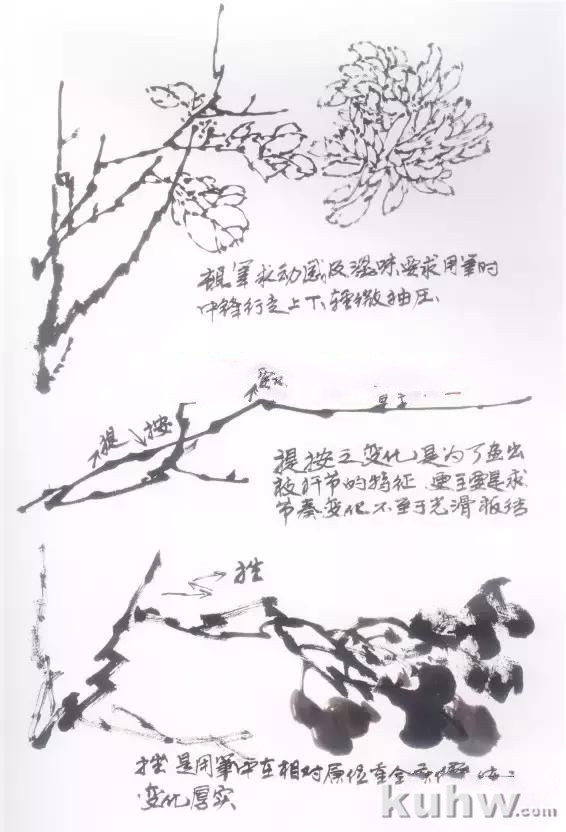 求动感及涩味,要求用笔时
中锋行走上下,轻微抽压.
提 按
提按之变化是为了画出
枝杆节的特征,更主要是求
节奏变化不至于光滑板结
挫
挫是用笔中在相对原位重合
变化厚实
kuhw.com